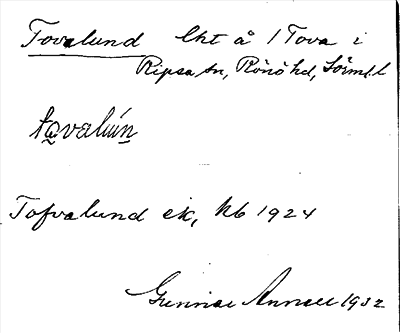 Tovalund lht å 1 Tova i
Ripsa sn, Rönö hd, Sörml. l
tωvalún
Tofvalund ek, kb 1924
Gunnar Annell 1932